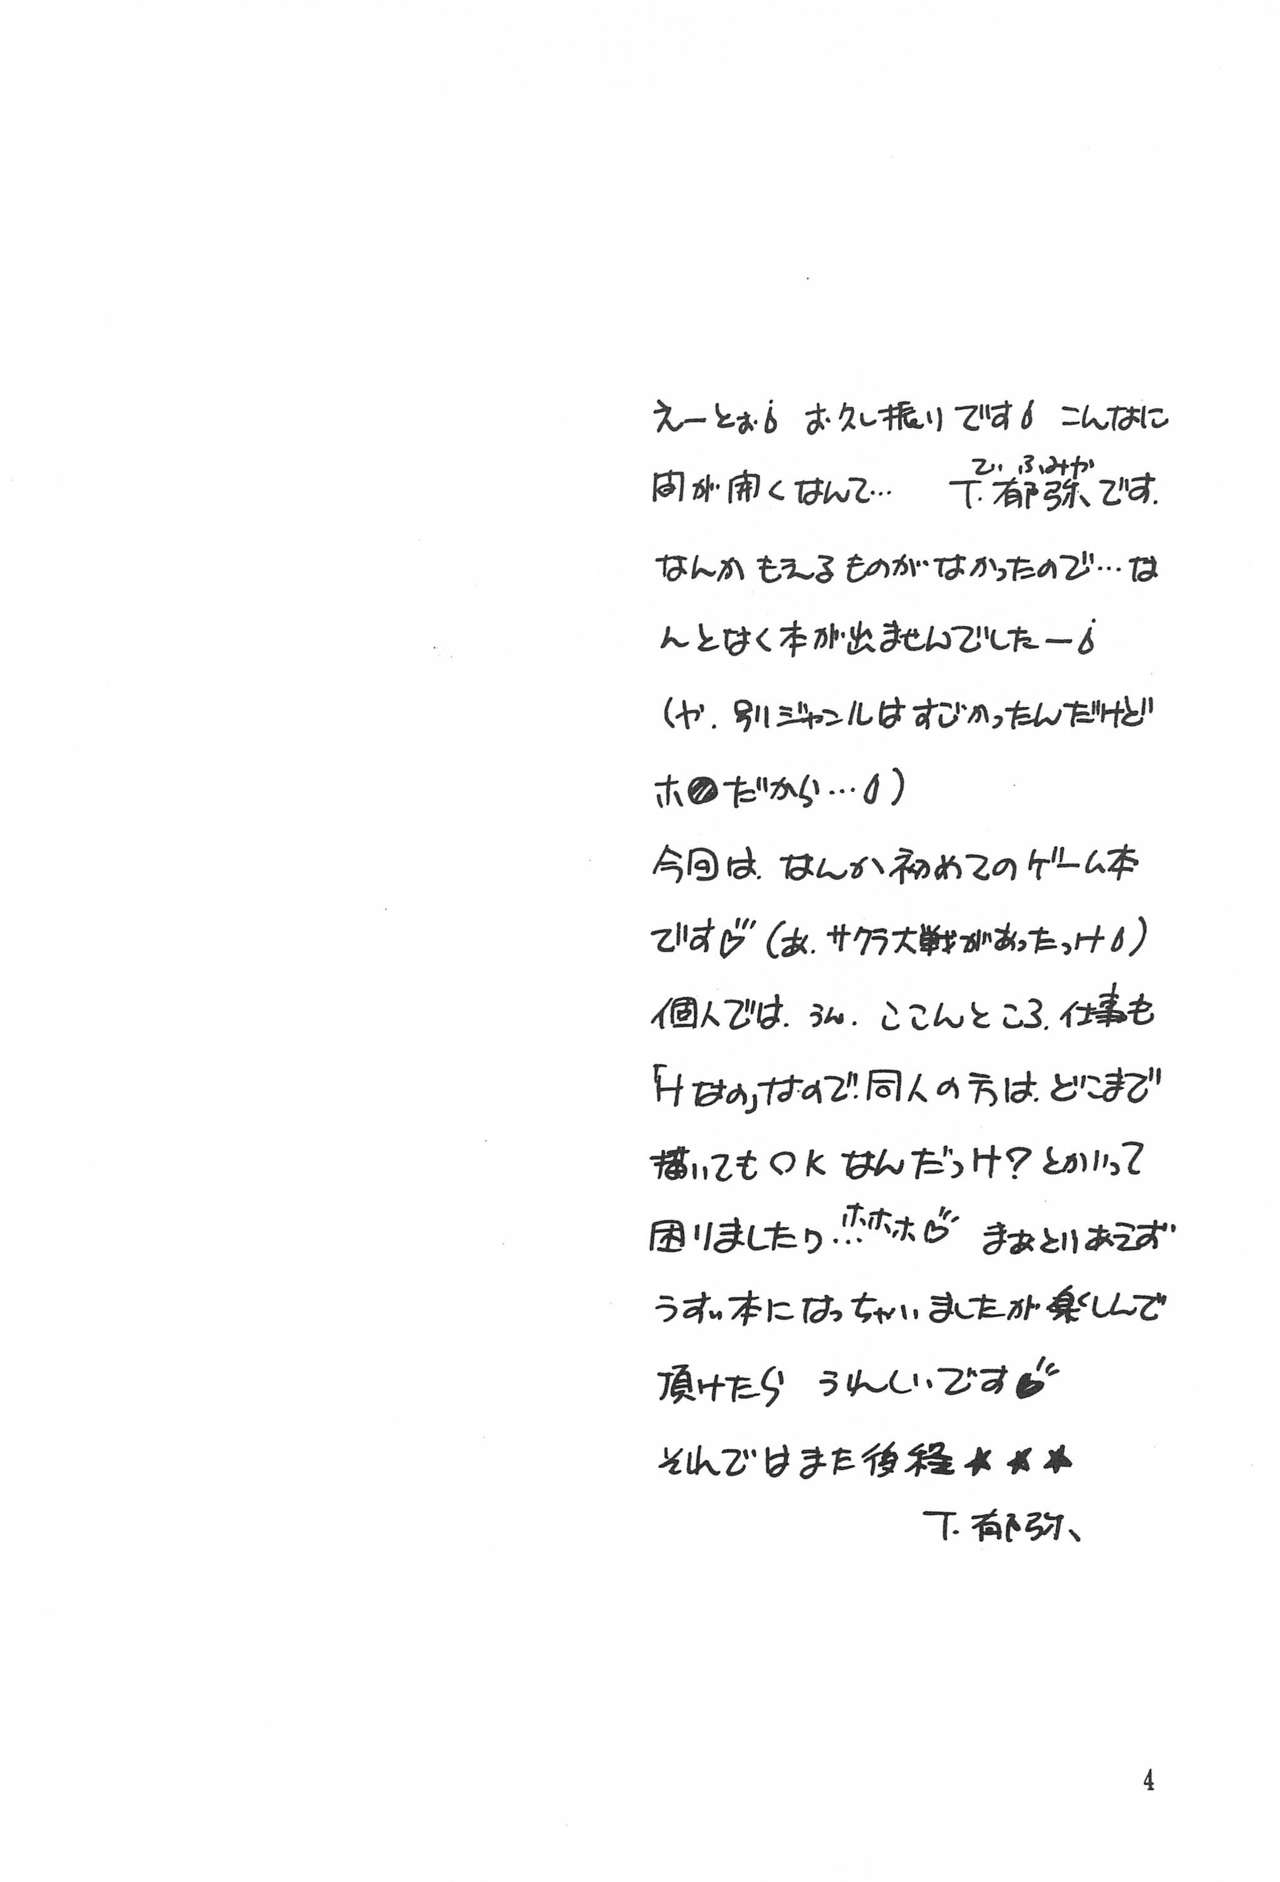 えーとぉ お久し振りです こんなに
間が開くなんて… T.郁弥、です.
でぃ ふみや
なんかもえるものがなかったので…な
んとなく本が出ませんでしたー
(や.別ジャンルはすごかったんだけど
ホ●だから…)
今回は.なんか初めてのゲーム本
です♡(あ.サクラ大戦があったっけ)
個人では.うん.ここんところ.仕事も
「Hなの」なので.同人の方は.どこまで
描いてもOKなんだっけ?とかいって
困りましたり…ホホホ♡ まぁとりあえず
うすい本になっちゃいましたが楽しんで
頂けたら うれしいです♥
それではまた後程★★★
T.郁弥、
4